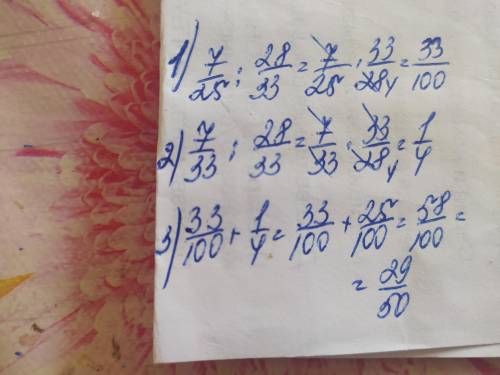 1) 7/25 : 28/33 = 7/25 · 33/28 4 = 33/100
2) 7/33 : 28/33 = 7/33 · 33/28 4 = 1/4
3) 33/100 + 1/4 = 33/100 + 25/100 = 58/100 =
= 29/50